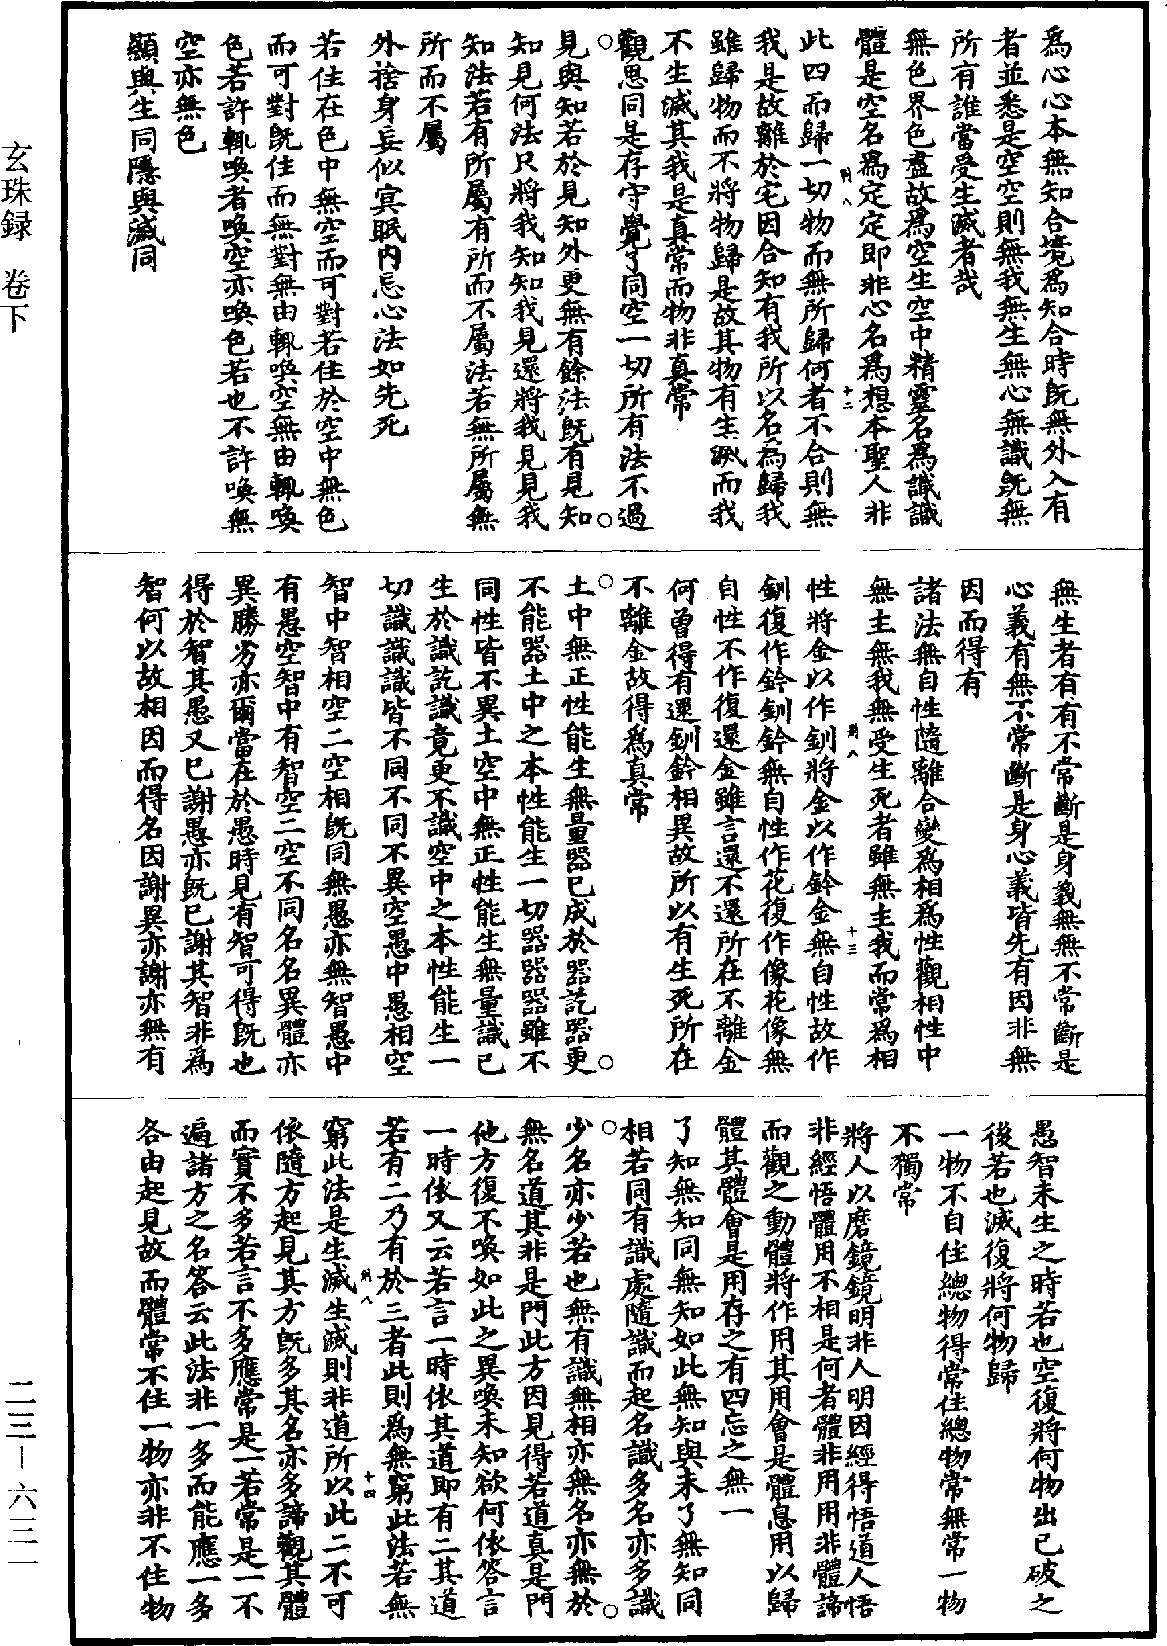 為心心本無知合境為知合時既無外入有
者並悉是空空則無我無生無心無識既無
所有誰當受生滅者哉
無色界色盡故為空生空中精靈名為識識
體是空名為定定即非心名為想本聖人非
此四而歸一切物而無所歸何者不合則無
我是故離於宅因合知有我所以名為歸我
雖歸物而不將物歸是故其物有生滅而我
不生滅其我是真常而物非真常
觀思同是存守覺了同空一切所有法不過
見與知若於見知外更無有餘法既有見知
知見何法只將我知知我見還將我見見我
知法若有所屬有所而不屬法若無所屬無
所而不屬
外捨身妄似寅眠內忌心法如先死
若住在色中無空而可對若住於空中無色
而可對既住而無對無由輒喚空無由輒喚
色若許輒喚者喚空亦喚色若也不許喚無
空亦無色
顯與生同隱與滅同
無生者有有不常斷是身義無無不常斷是
心義有無不常斷是身心義皆先有因非無
因而得有
諸法無自性隨離合變為相為性觀相性中
無主無我無受生死者雖無主我而常為相
性將金以作釧將金以作鈴金無自性故作
釧復作鈴釧鈴無自性作花復作像花像無
自性不作復還金雖言還不還所在不離金
何曾得有還釧鈴相異故所以有生死所在
不離金故得為真常
土中無正性能生無量器已成於器訖器更
不能器土中之本性能生一切器器器雖不
同性皆不異土空中無正性能生無量識已
生於識訖識竟更不識空中之本性能生一
切識識識皆不同不同不異空愚中愚相空
智中智相空二空相既同無愚亦無智愚中
有愚空智中有智空二空不同名名異體亦
異勝劣亦爾當在於愚時見有智可得既也
得於智其愚又已謝愚亦既已謝其智非為
智何以故相因而得名因謝異亦謝亦無有
愚智未生之時若也空復將何物出已破之
後若也滅復將何物歸
一物不自住總物得常住總物常無常一物
不獨常
將人以磨鏡鏡明非人明因經得悟道人悟
非經悟體用不相是何者體非用用非體諦
而觀之動體將作用其用會是體息用以歸
體其體會是用存之有四忘之無一
了知無知同無知如此無知與未了無知同
相若同有識處隨識而起名識多名亦多識
少名亦少若也無有識無相亦無名亦無於
無名道其非是門此方因見得若道真是門
他方復不喚如此之異喚未知欲何依答言
一時依又云若言一時依其道即有二其道
若有二乃有於三者此則為無窮此法若無
窮此法是生滅生滅則非道所以此二不可
依隨方起見其方既多其名亦多諦觀其體
而實不多若言不多應常是一若常是一不
遍諸方之名答云此法非一多而能應一多
各由起見故而體常不住一物亦非不住物
玄珠録　卷下
二三－六三一